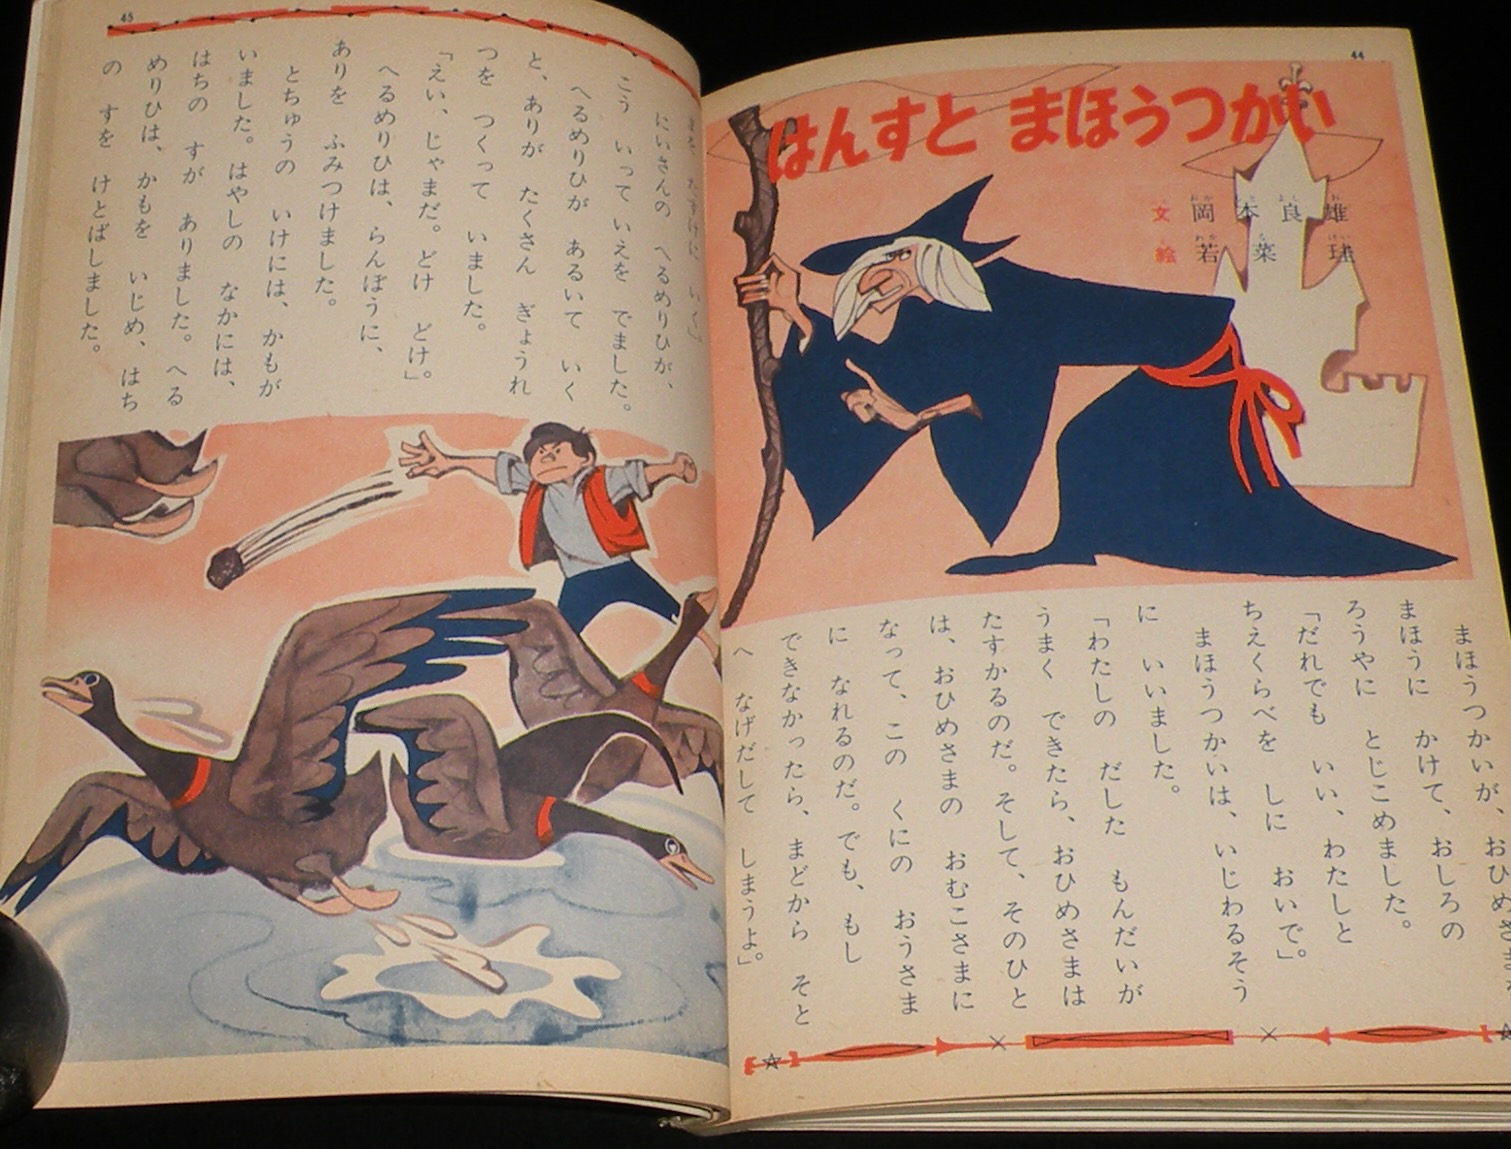 44
はんすと まほうつかい
文 岡本良雄
絵 若菜 珪
まほうつかいが、おひめさまを
まほうに かけて、おしろの
ろうやに とじこめました。
「だれでも いい、わたしと
ちえくらべを しに おいで」
まほうつかいは、いじわるそう
に いいました。
「わたしの だした もんだいが
うまく できたら、おひめさまは
たすかるのだ。そして、そのひと
は、おひめさまの おむこさまに
なって、この くにの おうさま
に なれるのだ。でも、もし
できなかったら、まどから そと
へ なげだして しまうよ」
45
たすけに いく」
にいさんの へるめりひが、
こう いって いえを でました。
へるめりひが あるいて いく
と、ありが たくさん ぎょうれ
つを つくって いました。
「えい、じゃまだ。どけ どけ」
へるめりひは、らんぼうに、
ありを ふみつけました。
とちゅうの いけには、かもが
いました。はやしの なかには、
はちの すが ありました。へる
めりひは、かもを いじめ、はち
の すを けとばしました。